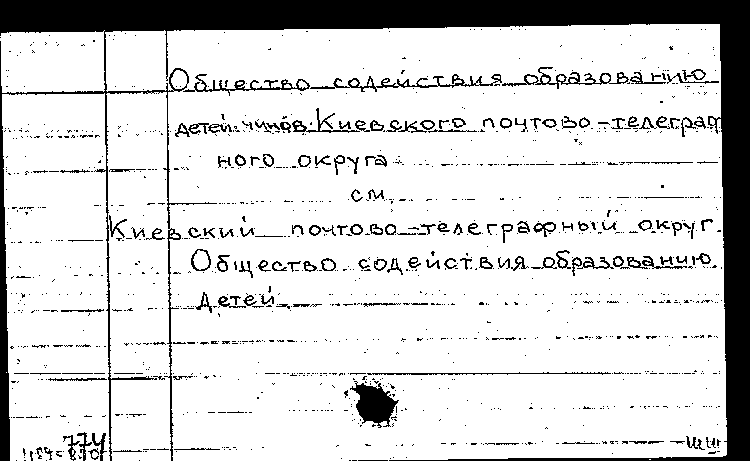 Общество содействия образованию
детей чинов Киевского почтово-телеграф
ного округа
см.
Киевский почтово-телеграфный округ.
Общество содействия образованию
детей.
774